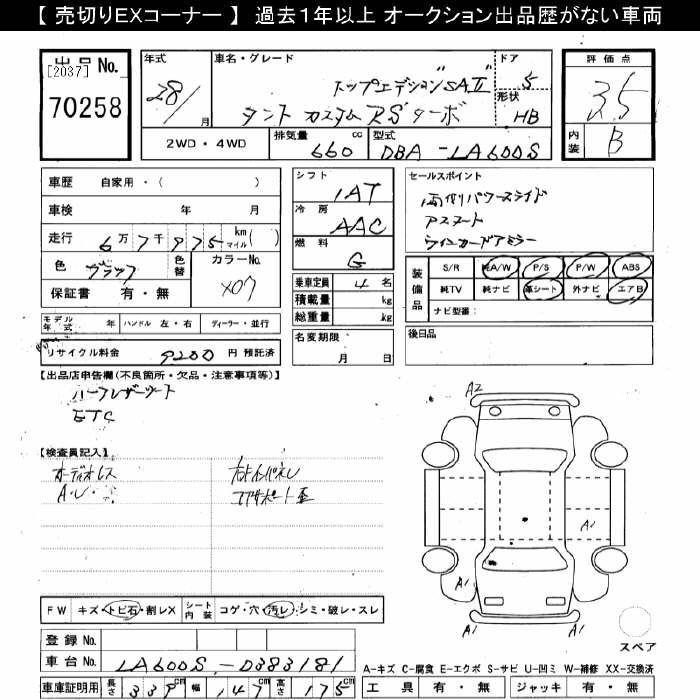 【 売切りEXコーナー 】 過去1年以上 オークション出品歴がない車両
出品 No.
[2037]
70258
年式
28/
月
車名・グレード
トップエディション"SAⅡ"
タント カスタム RS ターボ
ドア
5
形状
HB
評価点
3.5
内装
B
2WD・4WD
排気量
660 cc
型式
DBA-LA600S
車歴 自家用・( )
車検 年 月
走行 6万7千975 km マイル( )
色 ブラック 色替
カラーNo. X07
保証書 有・無
シフト
IAT
冷房
AAC
燃料
G
乗車定員 4 名
積載量 kg
総重量 kg
セールスポイント
両側パワースライド
ウインカードアミラー
装備品
S/R 純A/W P/S P/W ABS
純TV 純ナビ 革シート 外ナビ エアB
ナビ型番:
モデル年式 年 ハンドル 左・右 ディーラー・並行
リサイクル料金 9200 円 預託済
名変期限
月 日
後日品
【出品店申告欄(不良箇所・欠品・注意事項等)】
ハーフレザーシート
ETC
【検査員記入】
オーディオレス
A・U・
コアサポート歪
A2
A1
A1
A1
A1
スペア
FW キズ・トビ石・割レX シート内装 コゲ・穴・汚レ・シミ・破レ・スレ
登録 No.
車台 No. LA600S-0383181
車庫証明用 長さ 339 cm 幅 147 cm 高さ 175 cm
A-キズ C-腐食 E-エクボ S-サビ U-凹ミ W-補修 XX-交換済
工具 有・無 ジャッキ 有・無